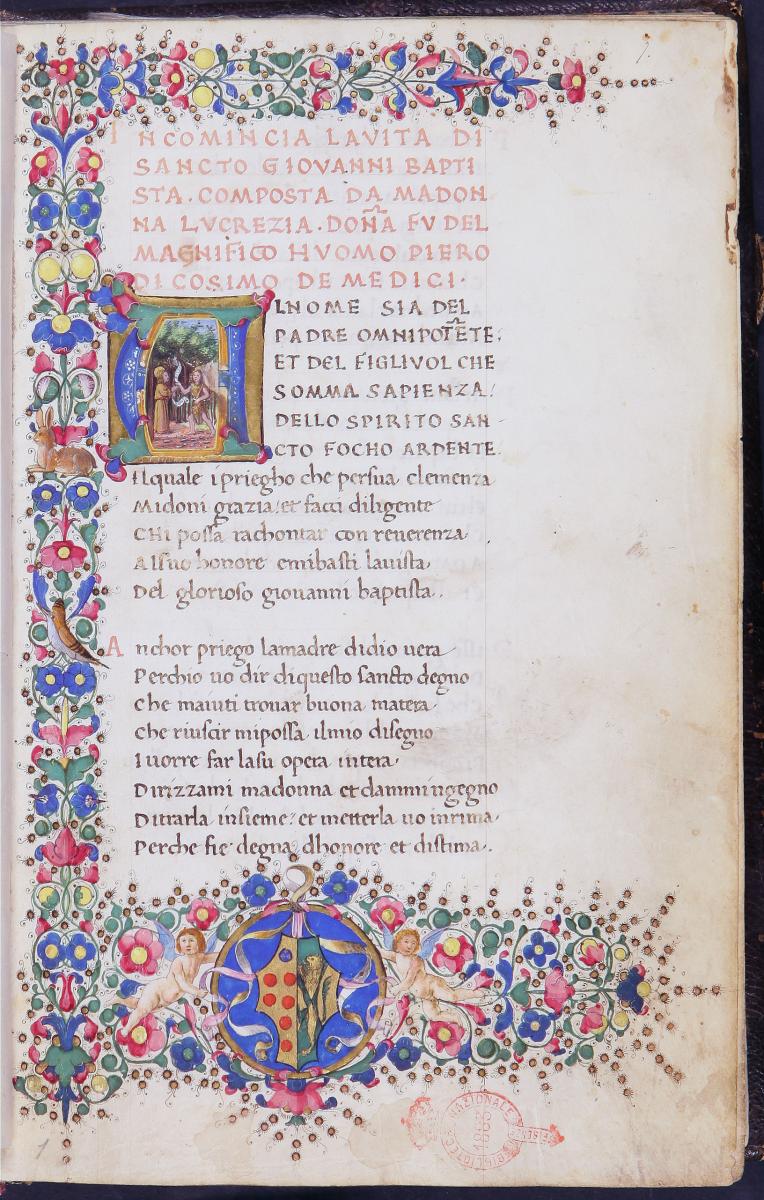 INCOMINCIA LAVITA DI
SANCTO GIOVANNI BAPTI
STA. COMPOSTA DA MADON
NA LVCREZIA. DOÑA FV DEL
MAGNIFICO HVOMO PIERO
DI COSIMO DE MEDICI.
ALNOME SIA DEL
PADRE OMNIPOTẼTE.
ET DEL FIGLIVOL CHE
SOMMA SAPIENZA/
DELLO SPIRITO SAN
CTO FOCHO ARDENTE.
Ilquale ipriegho che persua clemenza
Midoni grazia/et facci diligente
CHi possa rachontar con reuerenza
Alsuo honore emibasti lauista
Del glorioso giouanni baptista.
Anchor priego lamadre didio uera
Perchio uo dir diquesto sancto degno
Che maiuti trouar buona matera
Che riuscir mipossa ilmio disegno
Iuorre far lasu opera intera
Dirizzami madonna et dammi ngegno
Ditrarla insieme/et metterla uo inrima
Perche fie degna dhonore et distima.
NAZIONALE